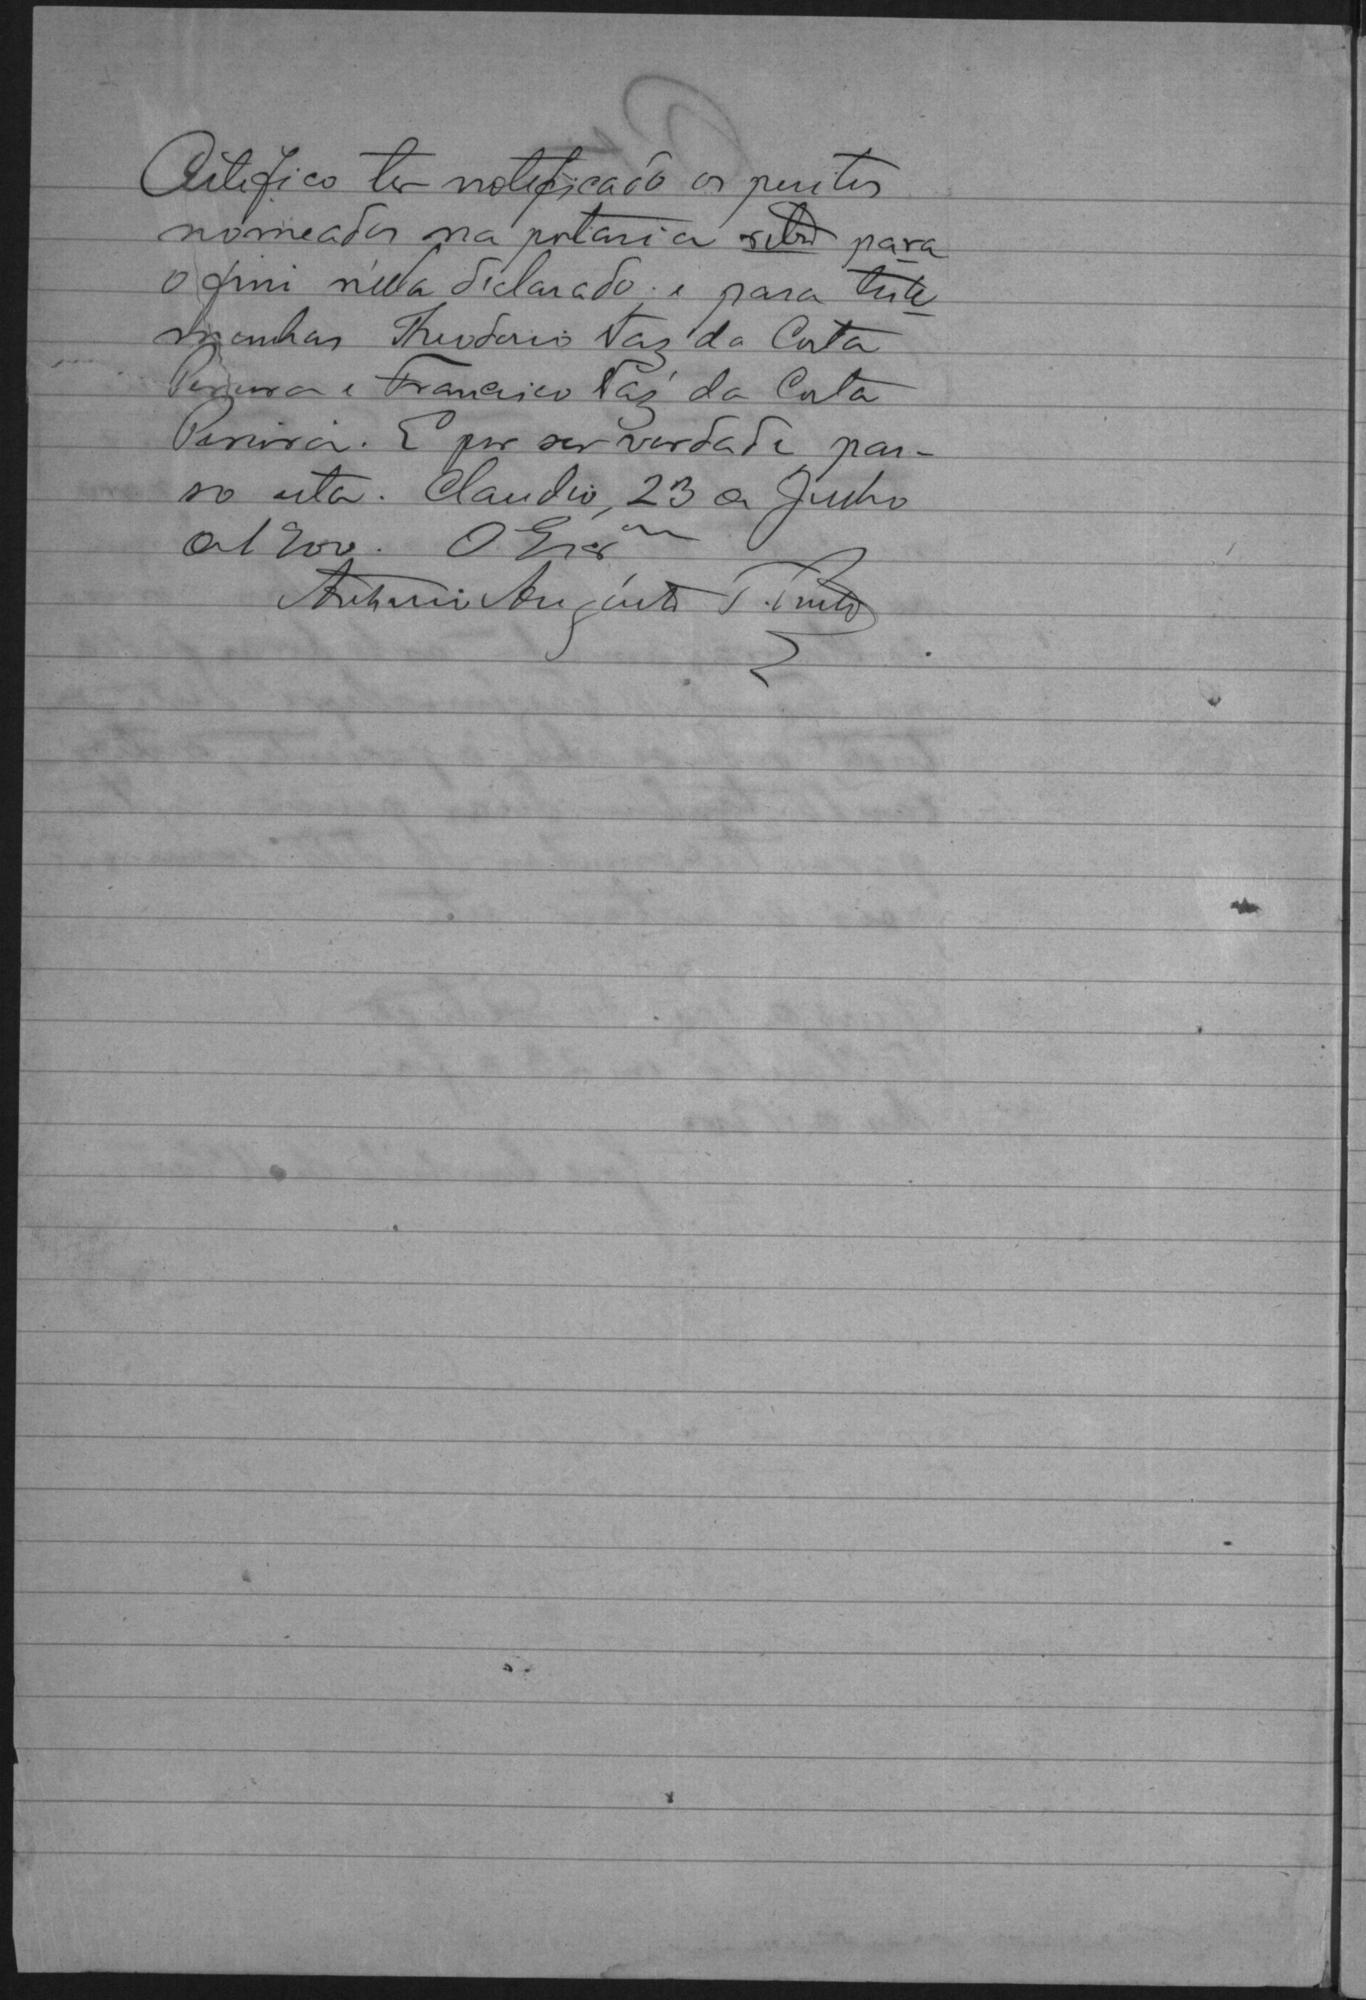 Certifico ter notificado os peritos
nomeados na portaria retro para
o fim n'ella declarado: e para teste
munhas Theodorio Vaz da Costa
Pereira e Francisco Vaz da Costa
Pereira. E por ser verdade pas-
so esta. Claudio, 23 de Junho
de 1900. O Escr.am
Antonio Augusto